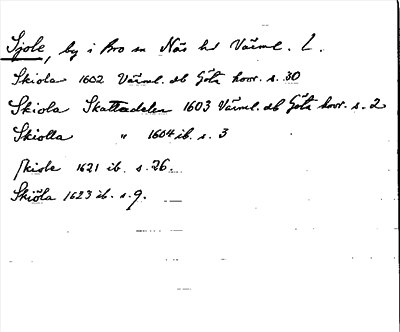 Sjole, by i Bro sn Näs hd Värml. L.
Skiola 1602 Värml. ab Göta horr. s. 30
Skiola Skattadelen 1603 Värml. ab Göta horr. s. 2
Skiolla " 1604 ib. s. 3
Skiole 1621 ib. s. 26.
Skiöla 1623 ib. s. 9.